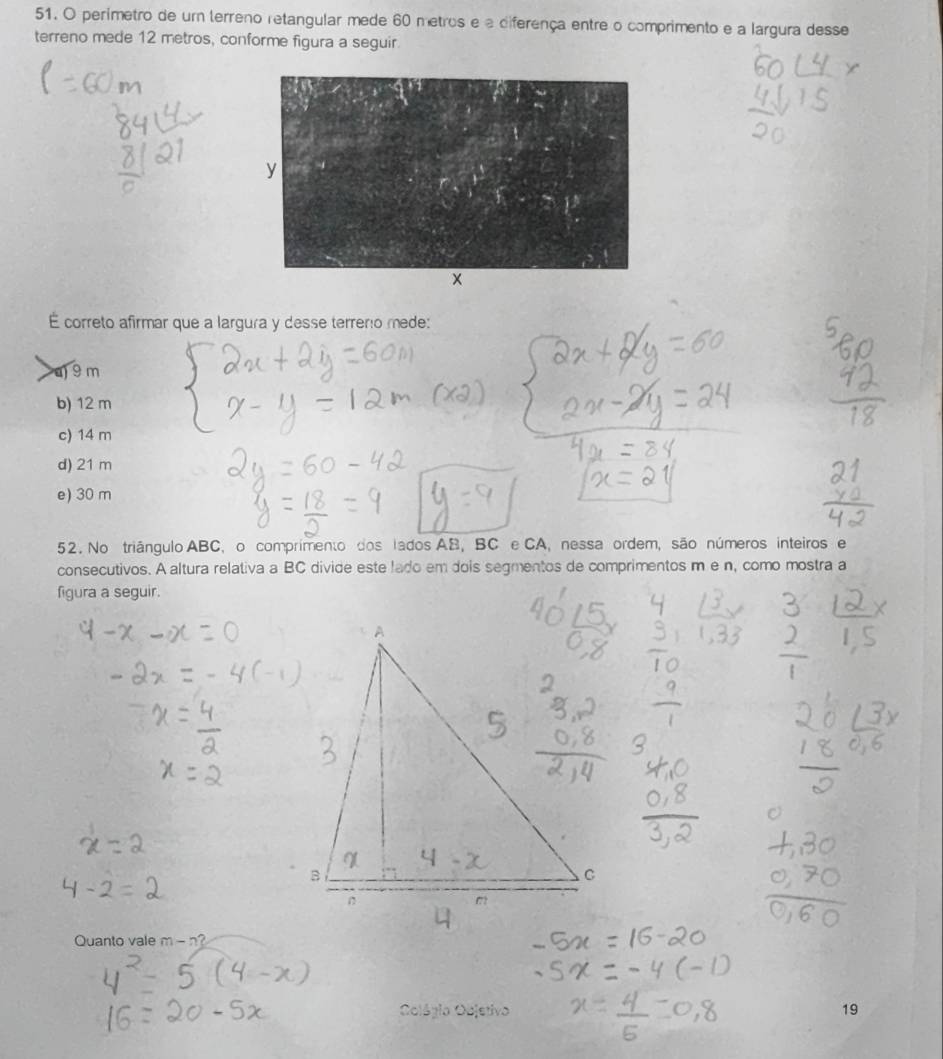 51. O perímetro de um terreno retangular mede 60 metros e a diferença entre o comprimento e a largura desse
terreno mede 12 metros, conforme figura a seguir.
P = 60 m
84 4
8 21
0
60 4
4 15
20
y
x
É correto afirmar que a largura y desse terreno mede:
a) 9 m
b) 12 m
c) 14 m
d) 21 m
e) 30 m
2x + 2y = 60m
x - y = 12m (x2)
2x + 2y = 60
2x - 2y = 24
4x = 84
x = 21
60
42
18
2y = 60 - 42
y = 18/2 = 9
y = 9
21
x2
42
52. No triângulo ABC, o comprimento dos lados AB, BC e CA, nessa ordem, são números inteiros e
consecutivos. A altura relativa a BC divide este lado em dois segmentos de comprimentos m e n, como mostra a
figura a seguir.
4 - x - x = 0
-2x = -4 (-1)
x = 4/2
x = 2
x = 2
4 - 2 = 2
40 5
0,8
4 3
3 1,33
10
9
1
3 2
2 1,5
1
3,2
0,8
2,4
4,0
0,8
3,2
20 3
18 0,6
2
0,70
0,60
A
3
5
x
4 - x
B
C
n
m
4
Quanto vale m – n?
4² = 5 (4 - x)
16 = 20 - 5x
-5x = 16 - 20
-5x = -4 (-1)
x = 4/5 = 0,8
Colégio Objetivo
19